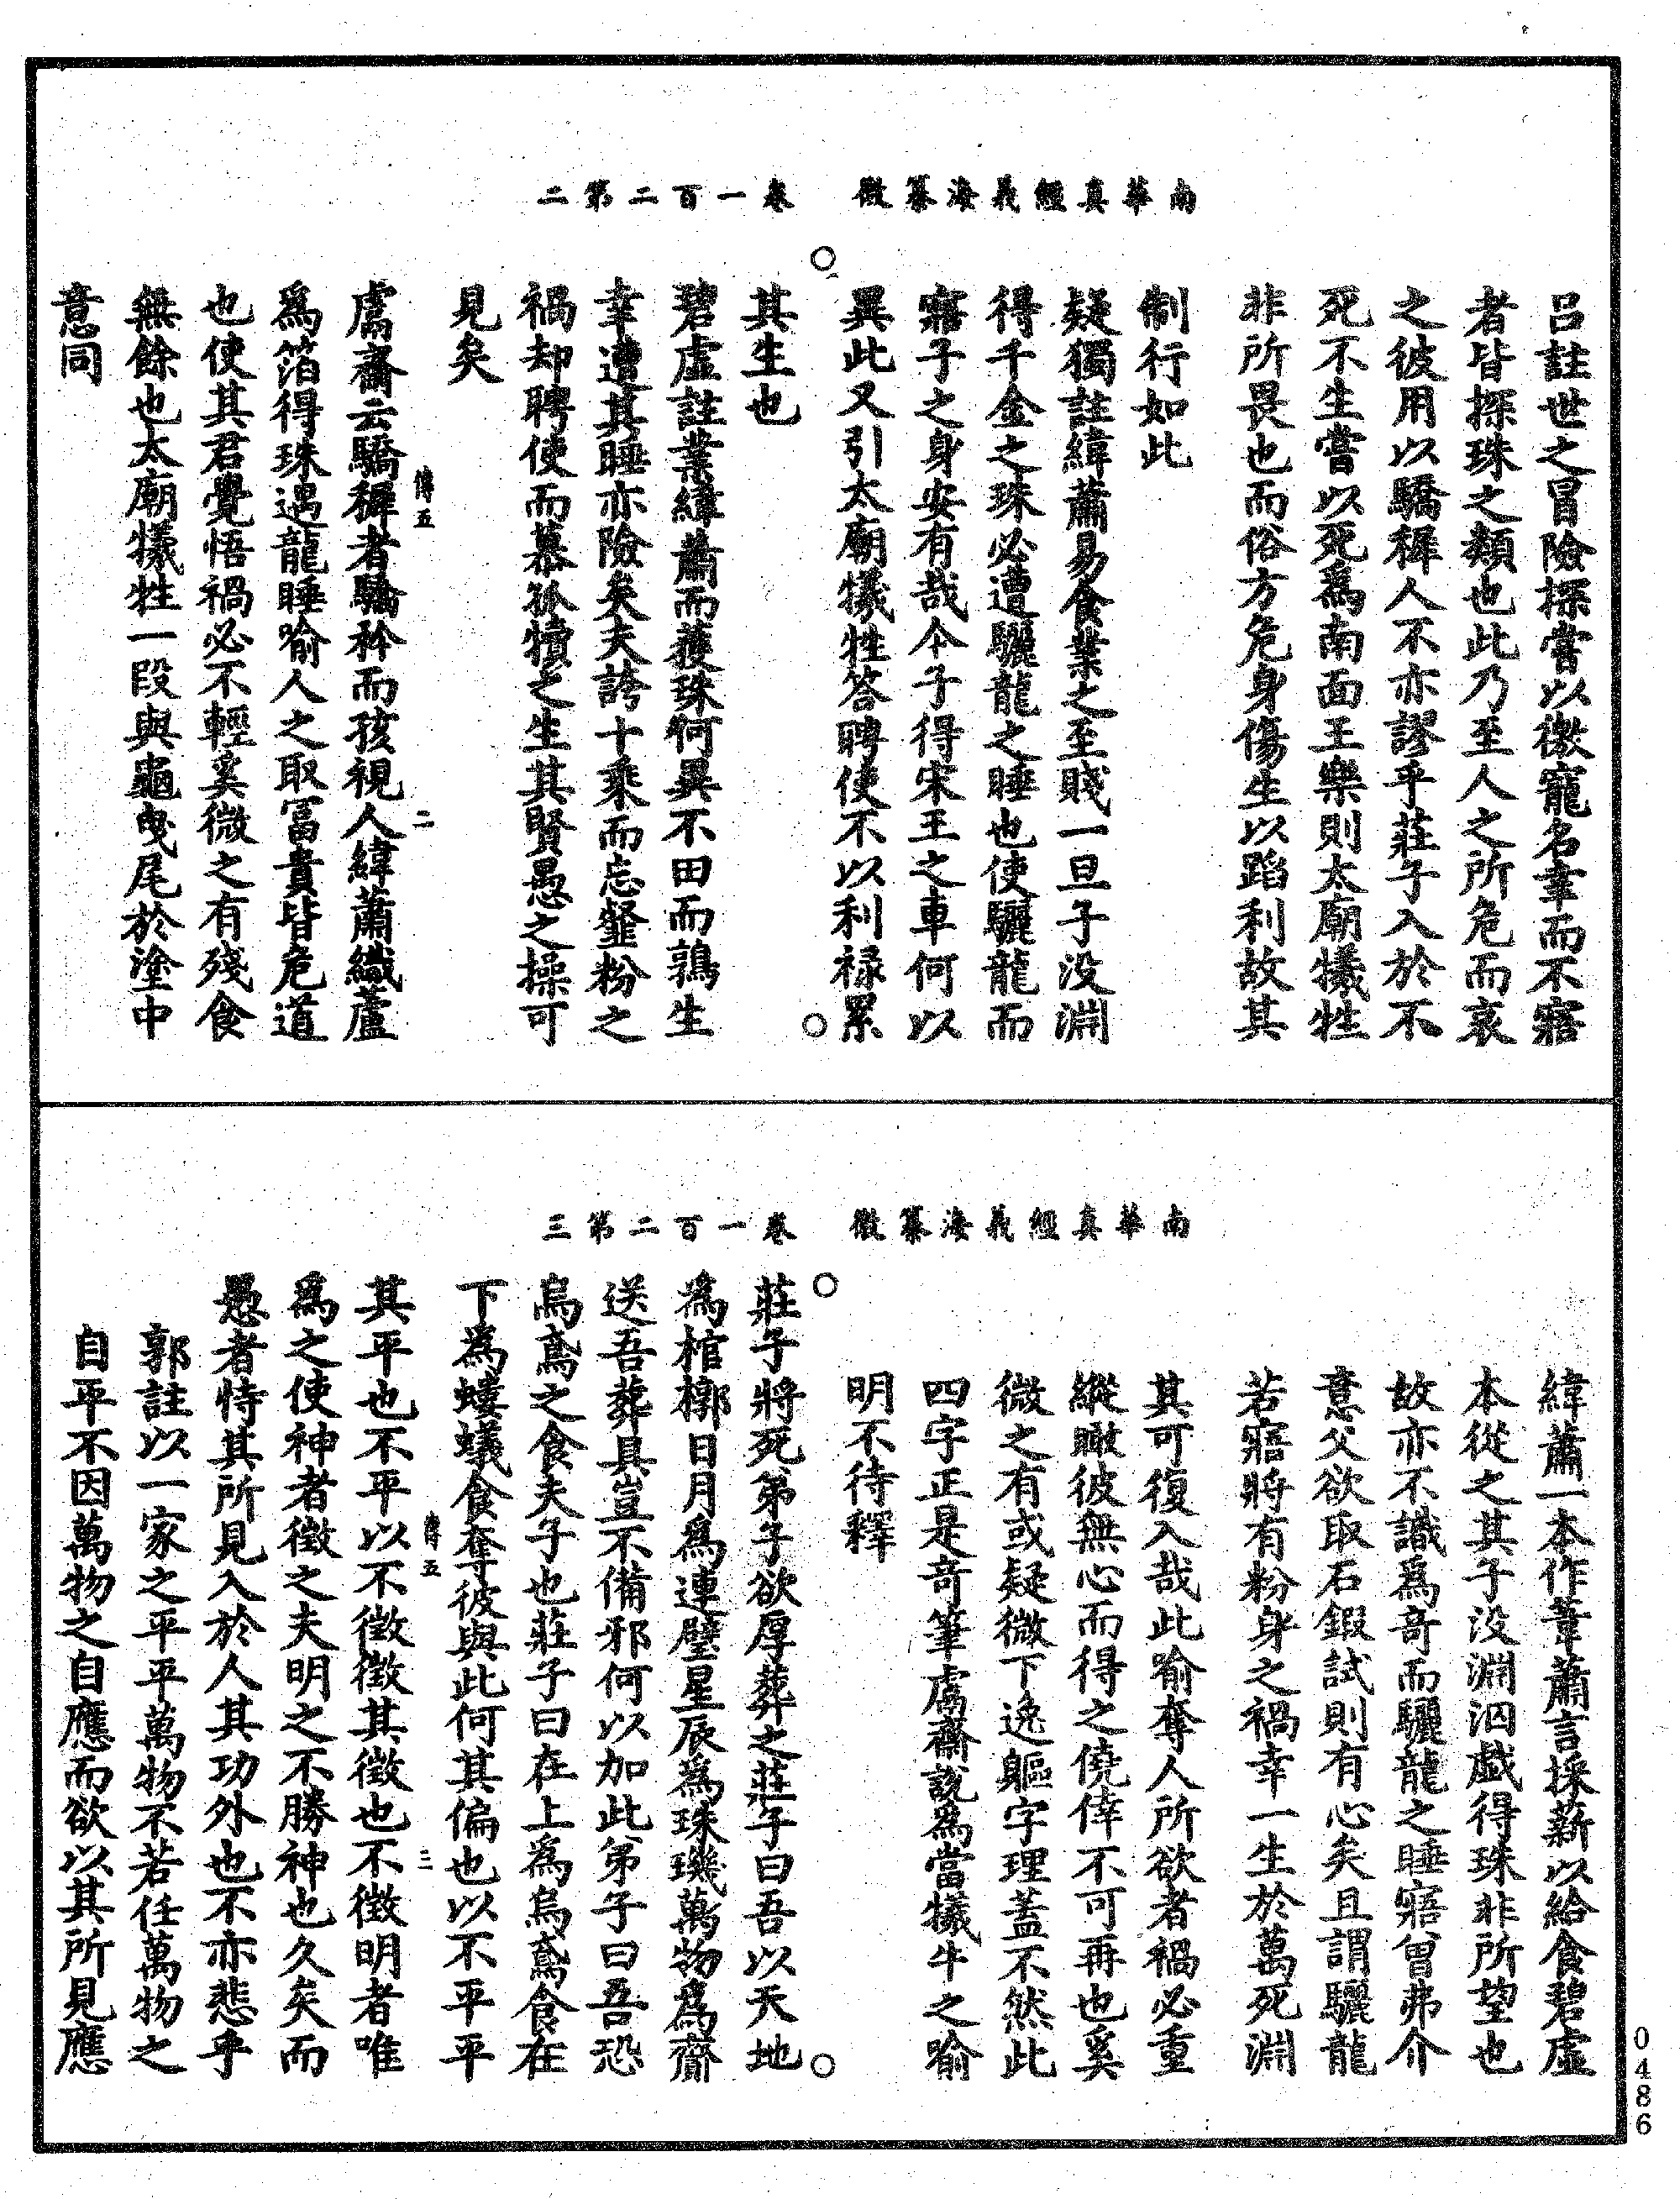 南華真經義海纂微　卷一百二第二
呂註世之冒險探當以徼寵名幸而不寤
者皆探珠之類也此乃至人之所危而哀
之彼用以驕穉人不亦謬乎莊子入於不
死不生嘗以死為南面王樂則太廟犧牲
非所畏也而俗方危身傷生以蹈利故其
制行如此
疑獨註緯蕭易食業之至賤一旦子没淵
得千金之珠必遭驪龍之睡也使驪龍而
寤子之身安有哉今子得宋王之車何以
異此又引太廟犧牲答聘使不以利祿累
其生也
碧虛註業緯蕭而獲珠何異不田而鶉生
幸遭其睡亦險矣夫誇十乘而忘韲粉之
禍却聘使而慕孤犢之生其賢愚之操可
見矣
傳五　二
鬳齋云驕穉者驕矜而孩視人緯蕭織蘆
為箔得珠遇龍睡喻人之取富貴皆危道
也使其君覺悟禍必不輕奚微之有殘食
無餘也太廟犧牲一段與龜曳尾於塗中
意同
南華真經義海纂微　卷一百二第三
緯蕭一本作葦蕭言採薪以給食碧虛
本從之其子没淵泅戲得珠非所望也
故亦不識為奇而驪龍之睡寤曾弗介
意父欲取石鍜試則有心矣且謂驪龍
若寤將有粉身之禍幸一生於萬死淵
其可復入哉此喻奪人所欲者禍必重
縱瞰彼無心而得之僥倖不可再也奚
微之有或疑微下逸軀字理蓋不然此
四字正是奇筆鬳齋說為當犧牛之喻
明不待釋
莊子將死弟子欲厚葬之莊子曰吾以天地
為棺槨日月為連璧星辰為珠璣萬物為齎
送吾葬具豈不備邪何以加此弟子曰吾恐
烏鳶之食夫子也莊子曰在上為烏鳶食在
下為螻蟻食奪彼與此何其偏也以不平平
傳五　三
其平也不平以不徵徵其徵也不徵明者唯
為之使神者徵之夫明之不勝神也久矣而
愚者恃其所見入於人其功外也不亦悲乎
郭註以一家之平平萬物不若任萬物之
自平不因萬物之自應而欲以其所見應
0486